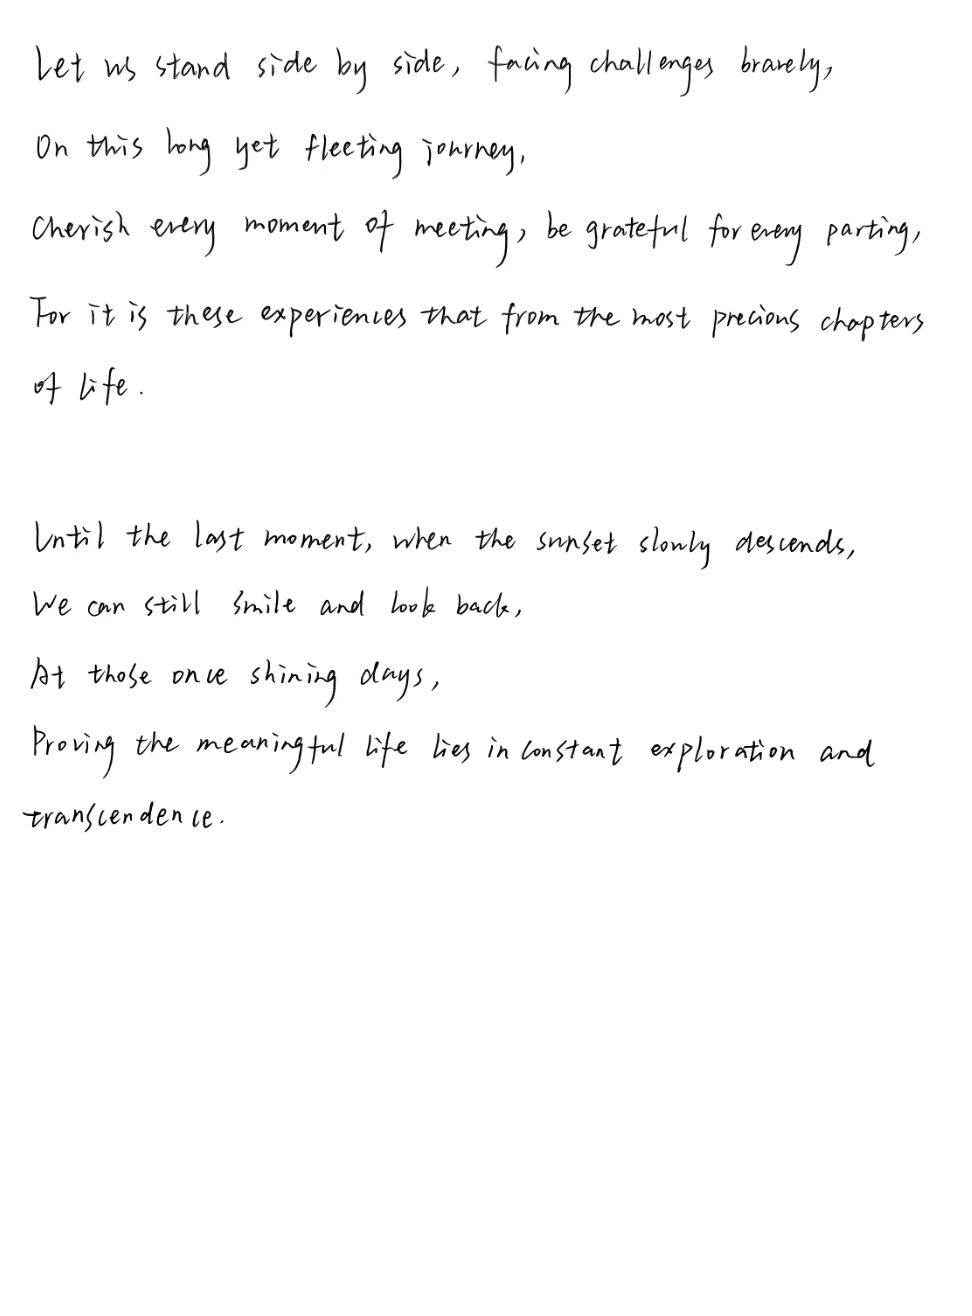 Let us stand side by side, facing challenges bravely,
On this long yet fleeting journey,
Cherish every moment of meeting, be grateful for every parting,
For it is these experiences that from the most precious chapters
of life.
Until the last moment, when the sunset slowly descends,
We can still smile and look back,
At those once shining days,
Proving the meaningful life lies in constant exploration and
transcendence.